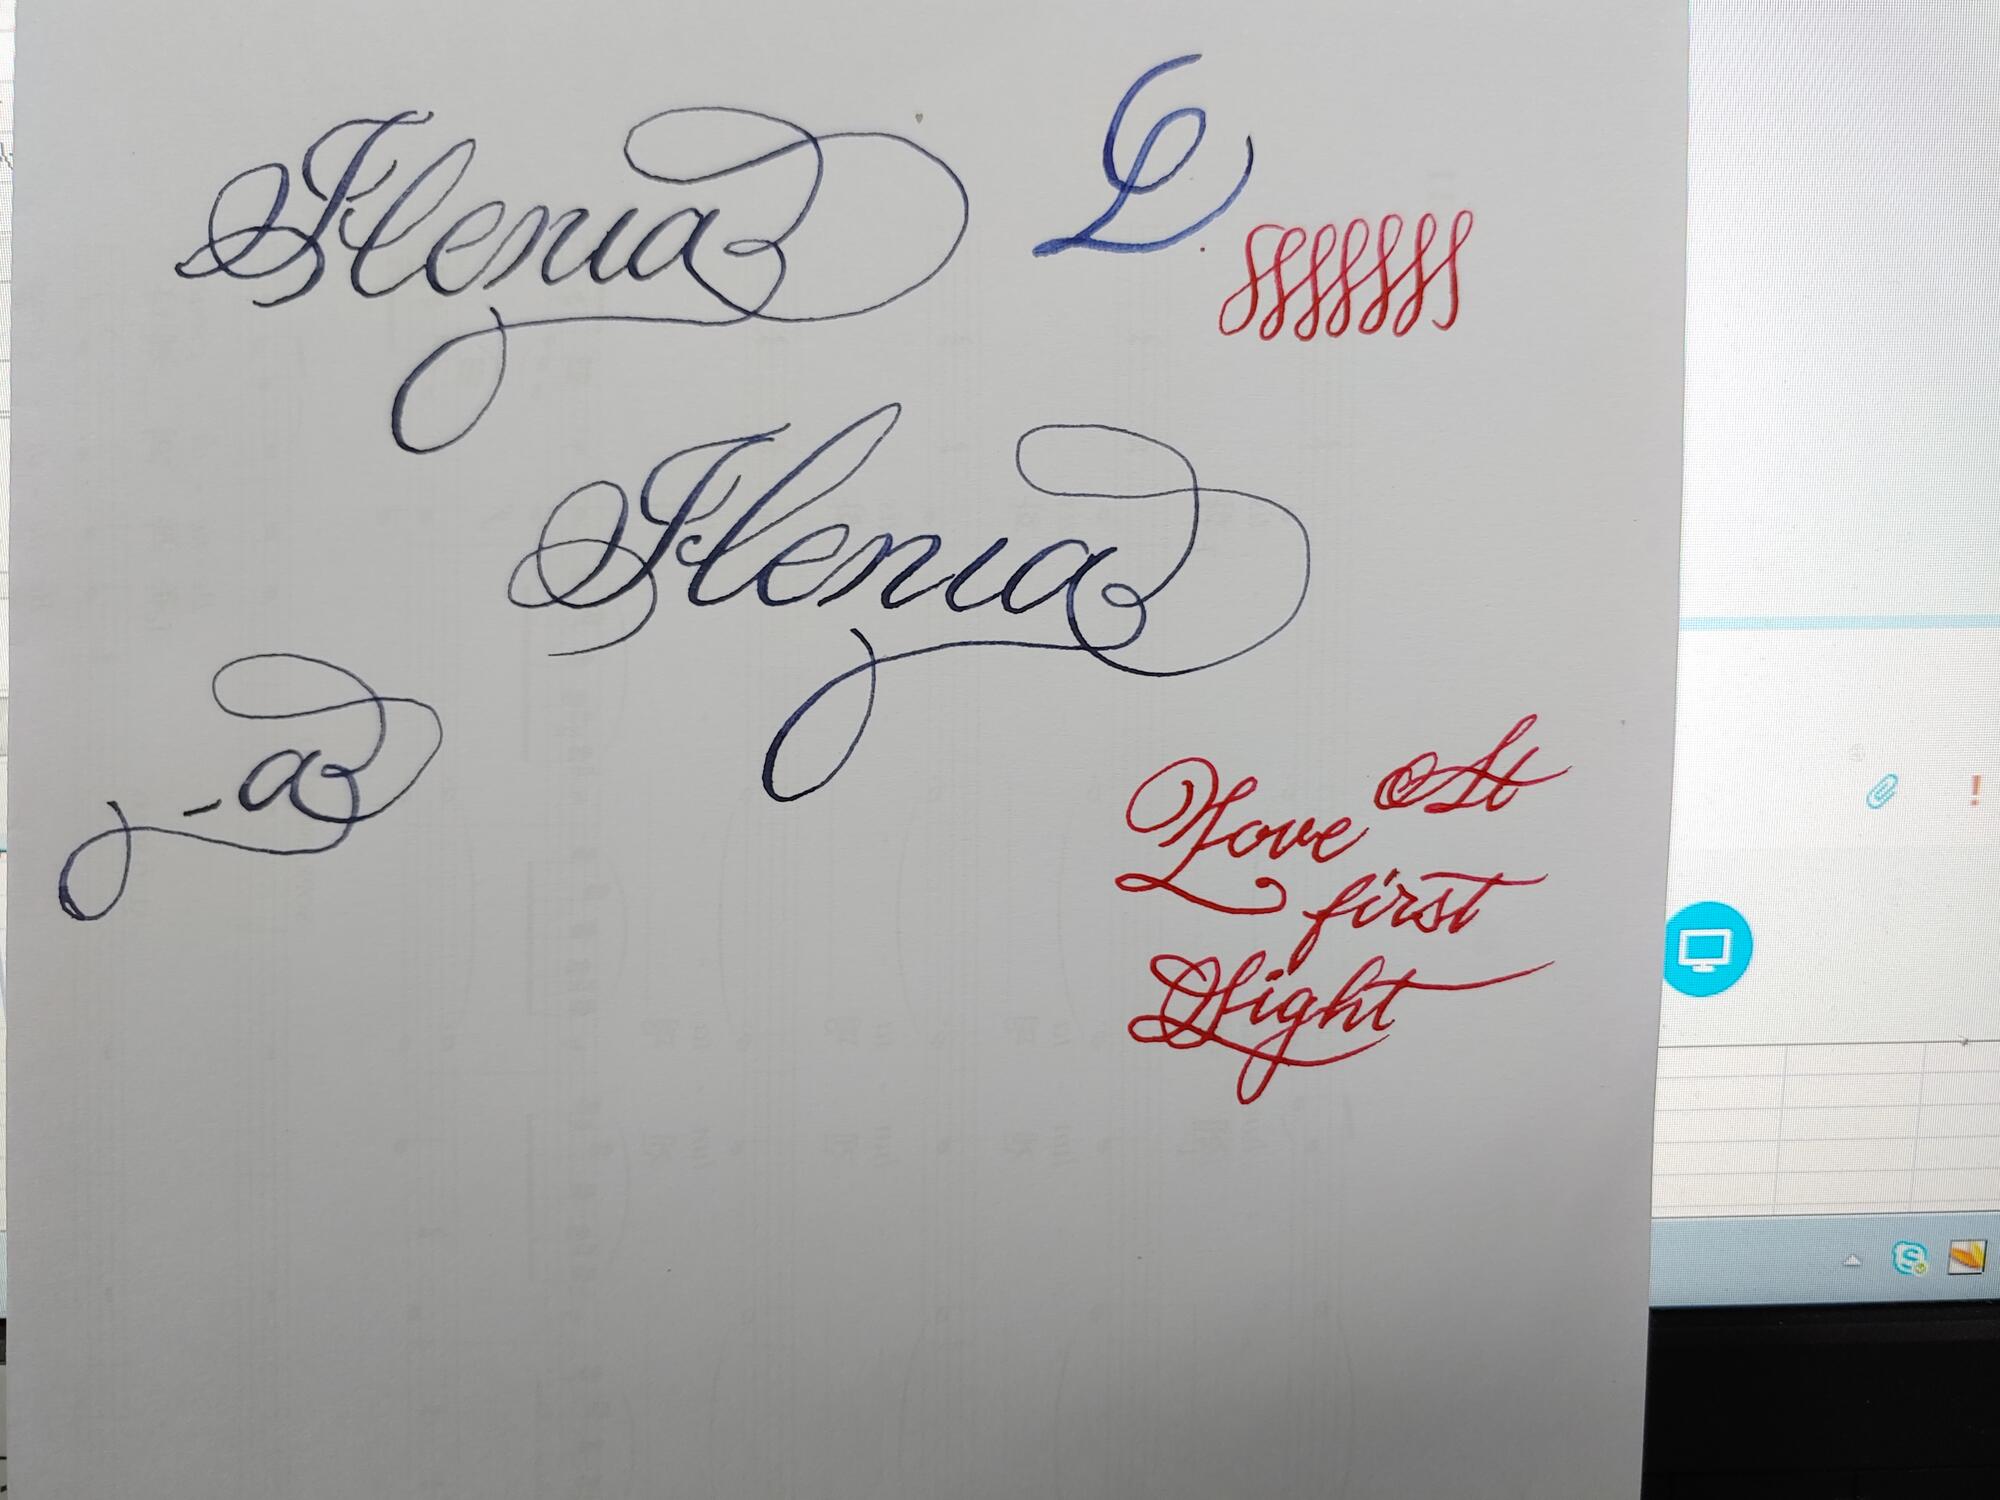 Ilenia
L
Ilenia
a
Love At
first
Sight